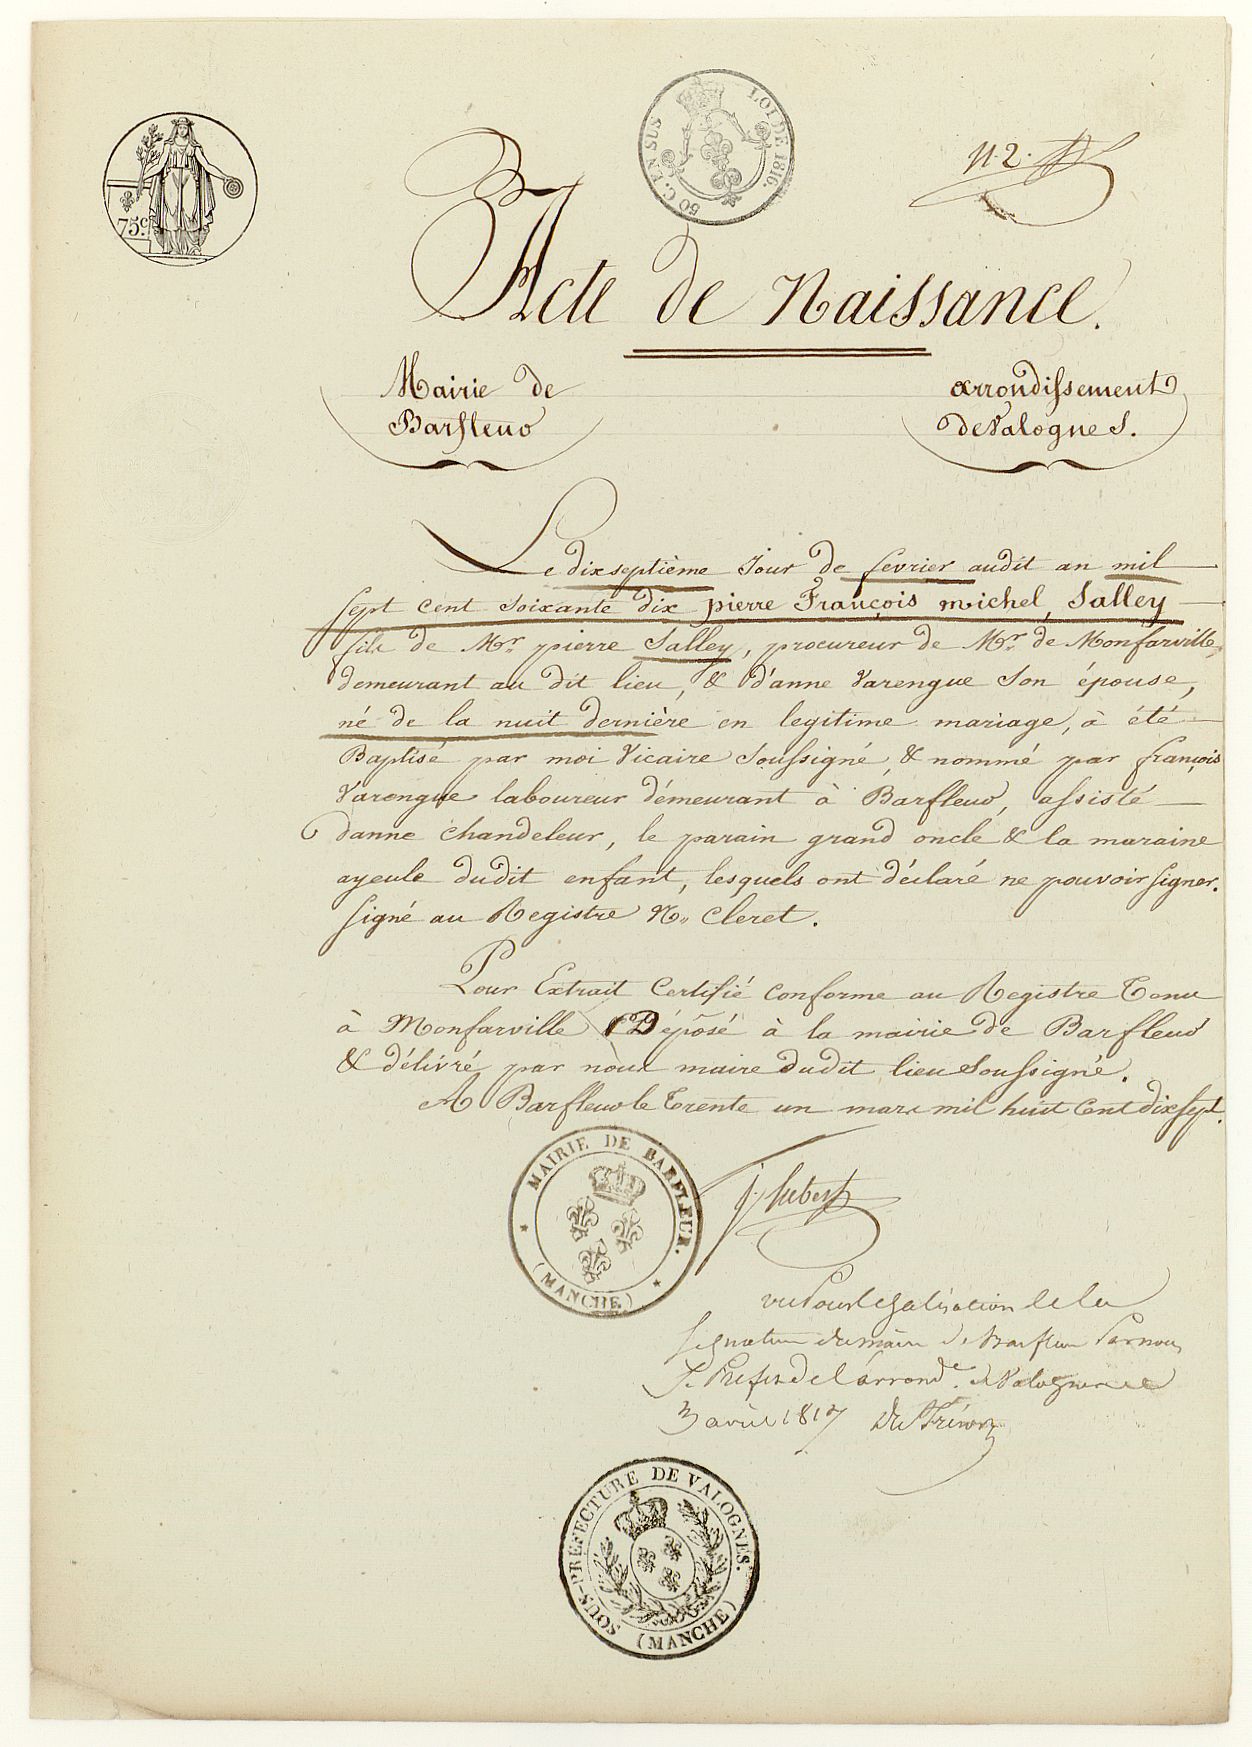 75c.
50 C. EN SUS LOI DE 1816.
N. 2.
Acte de Naissance.
Mairie de
Barfleur
arrondissement
de Valognes.
Le dixseptième Jour de fevrier audit an mil
sept cent soixante dix pierre François michel Salley
fils de Mr. pierre Salley, procureur de Mr. de Monfarville,
demeurant au dit lieu, & d'anne Varengue son épouse,
né de la nuit dernière en legitime mariage, à été
Baptisé par moi Vicaire Soussigné, & nommé par françois
Varengue laboureur démeurant à Barfleur, assisté
danne Chandeleur, le parain grand oncle & la maraine
ayeule dudit enfant, lesquels ont déclaré ne pouvoir signer.
signé au Registre N. Cleret.
Pour Extrait Certifié conforme au Registre Tenu
à Monfarville Déposé à la mairie de Barfleur
& délivré par nous maire dudit lieu Soussigné.
A Barfleur le Trente un mars mil huit Cent dix sept.
MAIRIE DE BARFLEUR.
(MANCHE)
vu Pour légalisation de la
signature du maire de Barfleur Par nous
S. Prefet de l'arrond. de Valognes ce
3 avril 1817
SOUS-PRÉFECTURE DE VALOGNES.
(MANCHE)